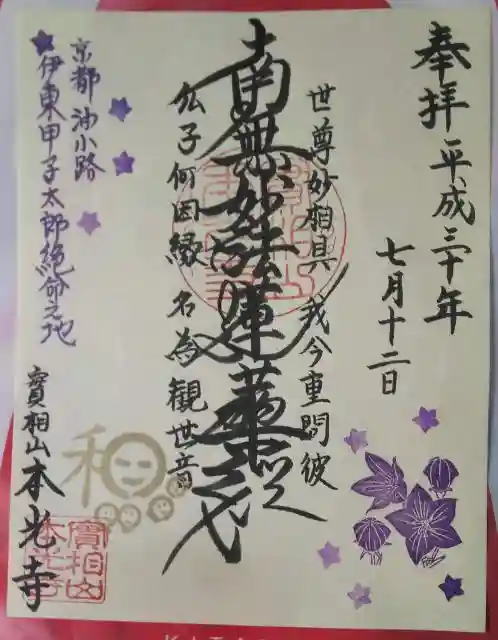 奉拝 平成三十年
七月十二日
世尊妙相具 我今重問彼
南無妙法蓮華経
仏子何因縁 名為観世音
京都 油小路
伊東甲子太郎絶命之地
寳相山 本光寺
和
寳相山
本光寺